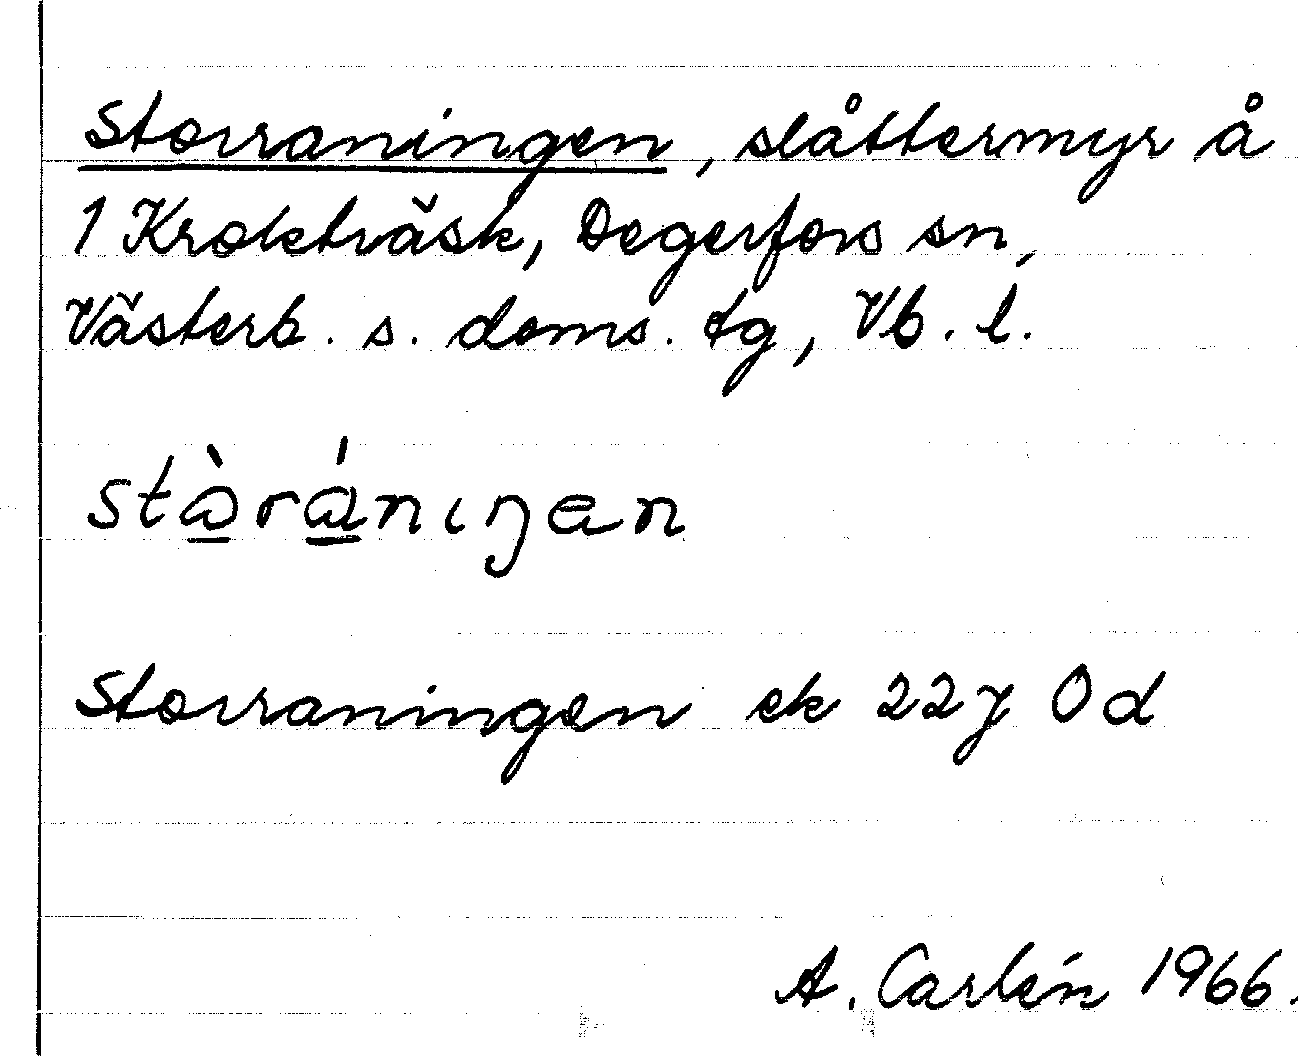 Storraningen, slåttermyr å
1 Krokträsk, Degerfors sn,
Västerb. s. doms. tg, Vb. l.
stɷ̠̀rɑ̠́nıŋən
Storraningen ek 22J 0d
A. Carlén 1966.